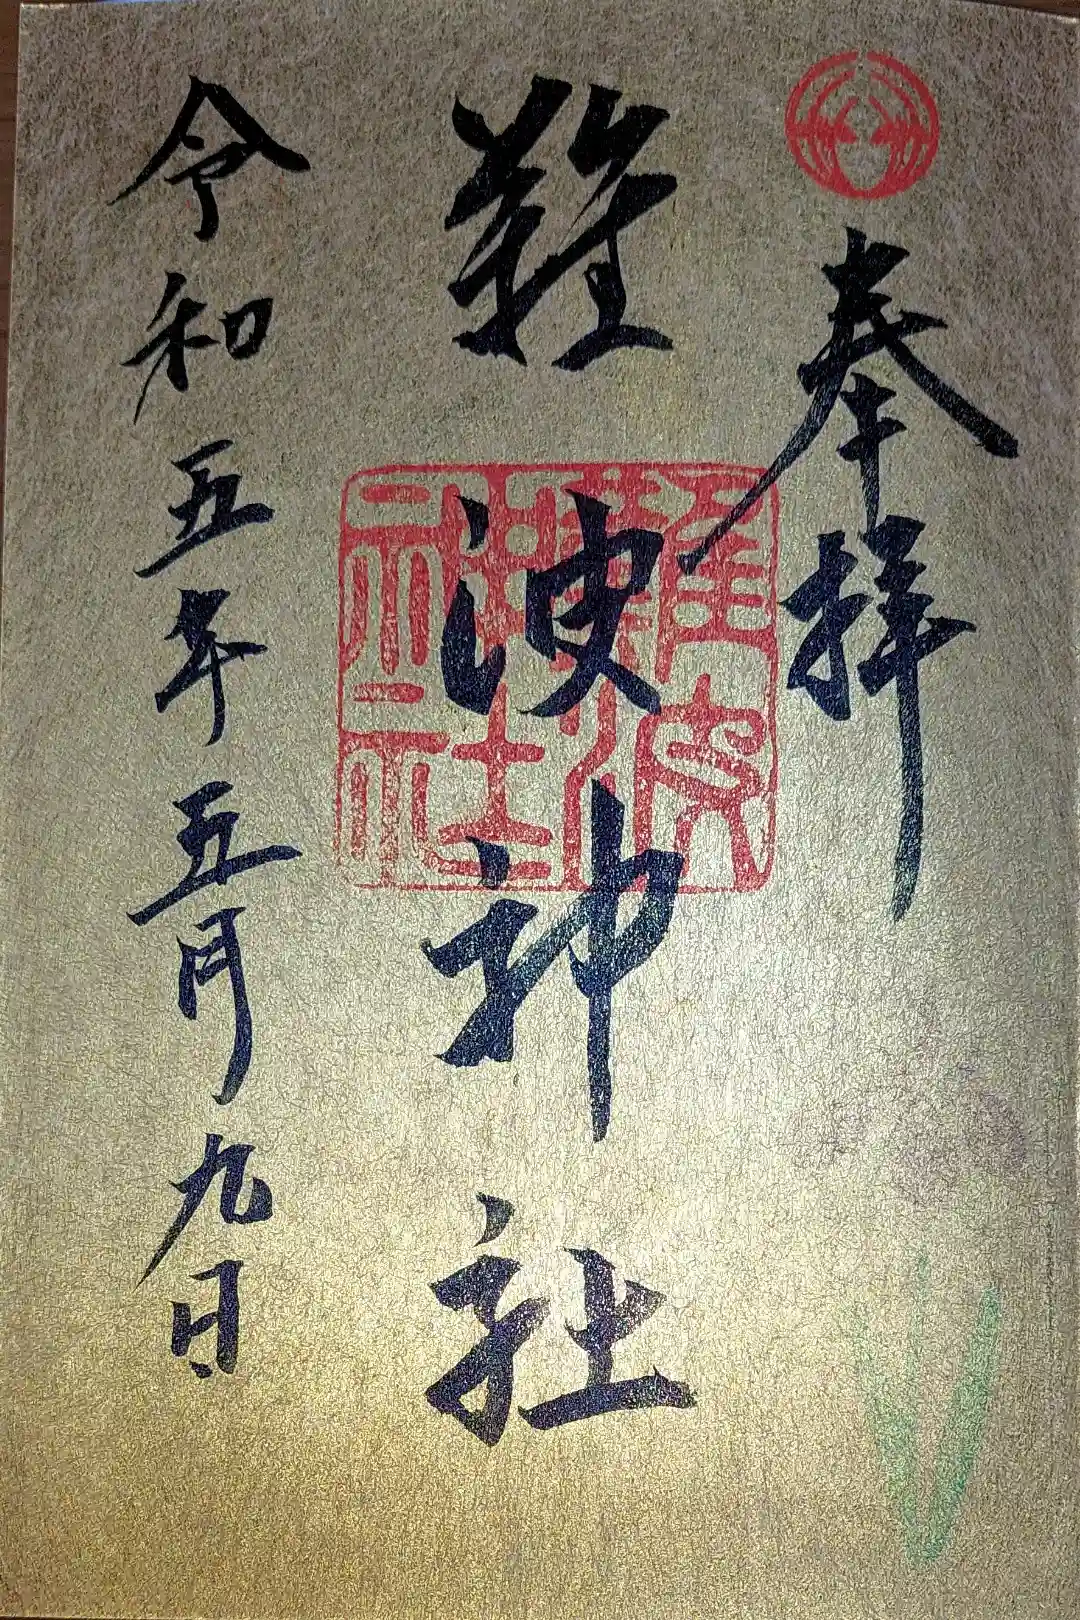 奉拝
難波神社
難波神社
令和五年五月九日